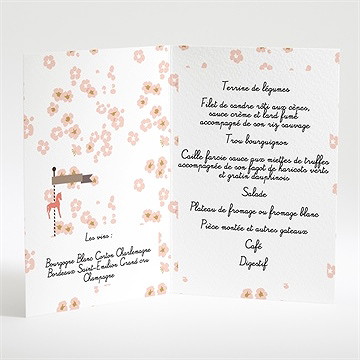 Les vins :
Bourgogne Blanc Corton Charlemagne
Bordeaux Saint-Emilion Grand cru
Champagne
Terrine de légumes
Filet de sandre rôti aux cèpes,
sauce crème et lard fumé
accompagné de son riz sauvage
Trou bourguignon
Caille farcie sauce aux miettes de truffes
accompagnée de son fagot de haricots verts
et gratin dauphinois
Salade
Plateau de fromage ou fromage blanc
Pièse montée et autres gateaux
Café
Digestif